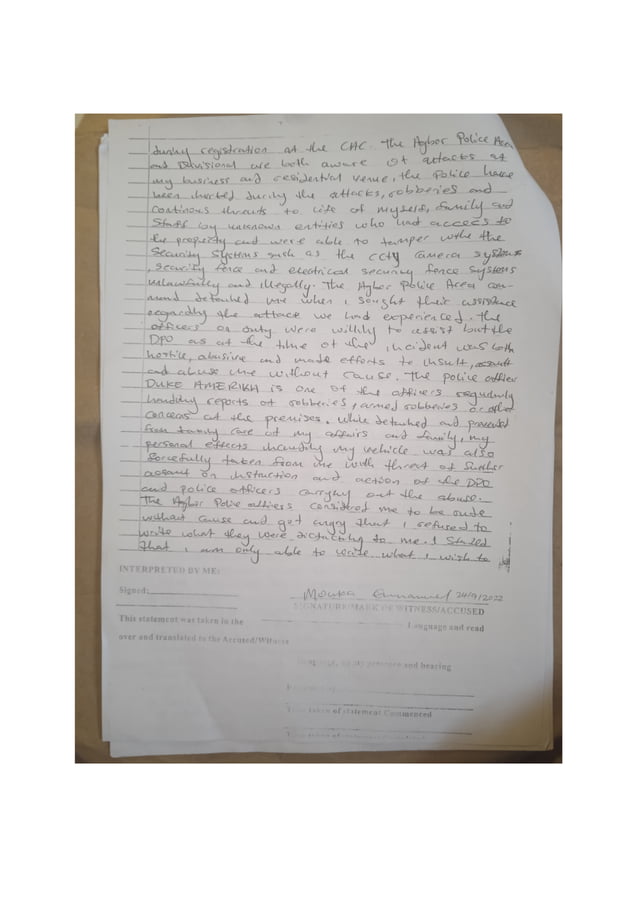 during registration at the CAC. The Agbor Police Area
and Divisional are both aware of attacks at
my business and residential venue, the Police have
been alerted during the attacks, robberies and
continous threats to life of myself, family and
staff by unknown entities who had access to
the property and were able to tamper with the
Security Systems such as the cctv camera systems
, security fence and electrical security fence systems
unlawfully and illegally. The Agbor Police Area com-
mand detained me when I sought their assistance
regarding the attack we had experienced. The
officers on duty were willing to assist but the
DPO as at the time of the incident was both
hostile, abusive and made efforts to insult, assault
and abuse me without cause. The police officer
DUKE AMERIKH is one of the officers regularly
handling reports of robberies, armed robberies or other
concerns at the premises. While detained and prevented
from taking care of my affairs and family, my
personal effects including my vehicle was also
forcefully taken from me with threat of further
assault on instruction and action of the DPO
and police officers carrying out the abuse.
The Agbor Police officers considered me to be rude
without cause and got angry that I refused to
write what they were dictating to me. I Stated
that I am only able to write what I wish to
INTERPRETED BY ME:
Signed: 24/9/2022
SIGNATURE/MARK OF WITNESS/ACCUSED
This statement was taken in the Language and read
over and translated to the Accused/Witness
presence and hearing
taken of statement Commenced